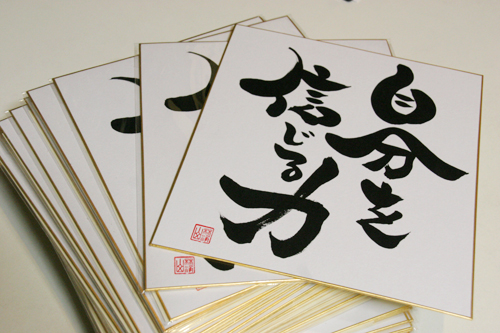 自分を
信じる力